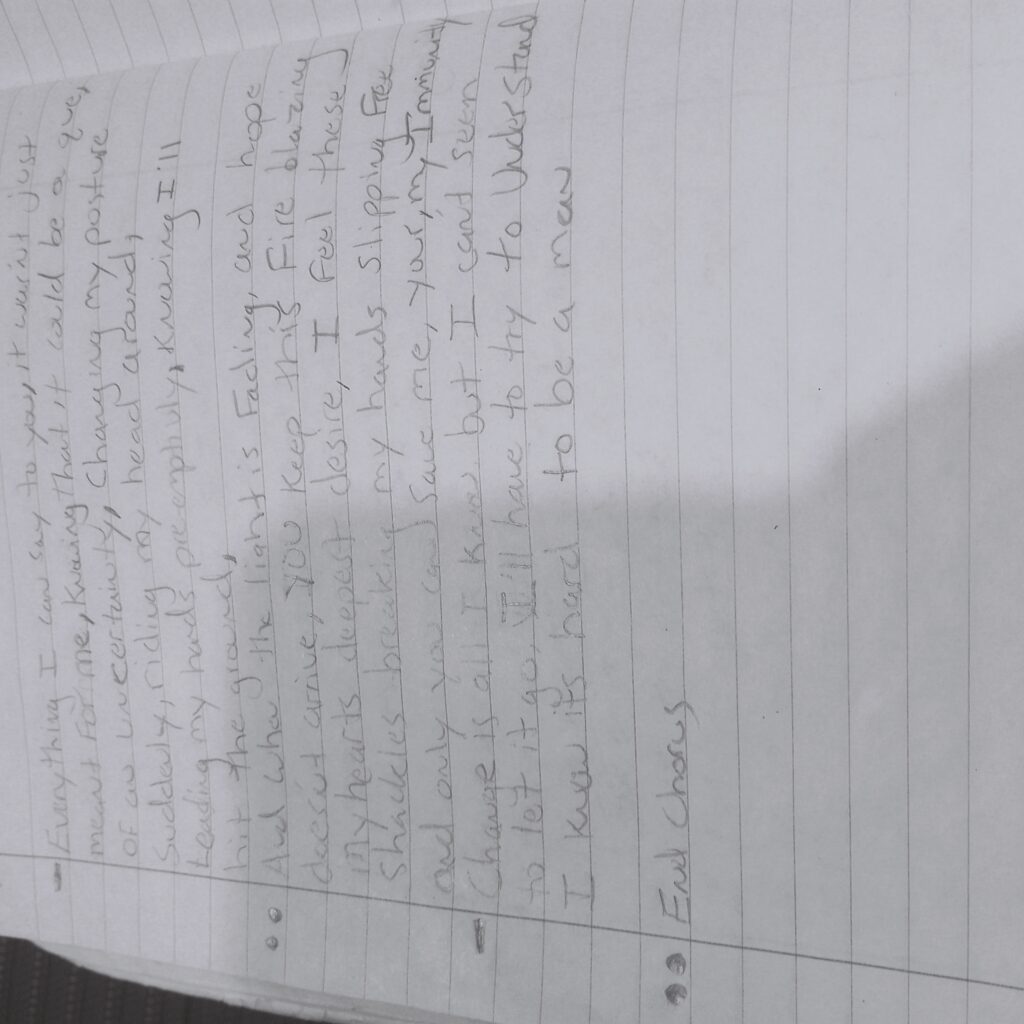 - Everything I can say to you, it wasn't just
meant for me, knowing that it could be a que,
of an uncertainty, Changing my posture
suddenly, riding my head around,
tending my hands preemptively, Knowing I'll
hit the ground,
•• And when the light is Fading, and hope
doesent arrive, You keep this Fire blazing
My hearts deepest desire, I Feel these
Shackles breaking my hands Slipping Free
and only you can Save me, your, my Immunity
- Change is all I know but I can't seem
to let it go. I'll have to try to Understand
I know it's hard to be a man
•• End Chorus